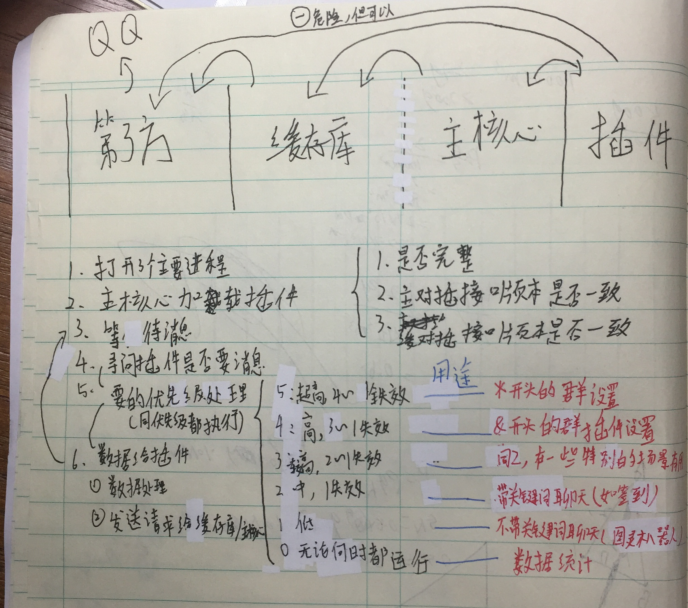 ㊀危险,但可以
QQ
第3方 缓存库 主核心 插件
1. 打开3个主要进程
2. 主核心加载插件
3. 等待消息
4. 寻问插件是否要消息
5. 要的优先级处理
(同优先级都执行)
6. 数据给插件
① 数据处理
② 发送请求给缓存库/主核心
1. 是否完整
2. 主对插接口版本是否一致
3. 缓对插接口版本是否一致
用途
5: 超高, 4~1全失效 *开头的群设置
4: 高, 3~1失效 &开头的群插件设置
3 较高, 2~1失效 同2, 在一些特别的场景有用
2 中, 1失效 带关键词聊天(如签到)
1 低 不带关键词聊天(图灵机器人)
0 无论何时都运行 数据统计